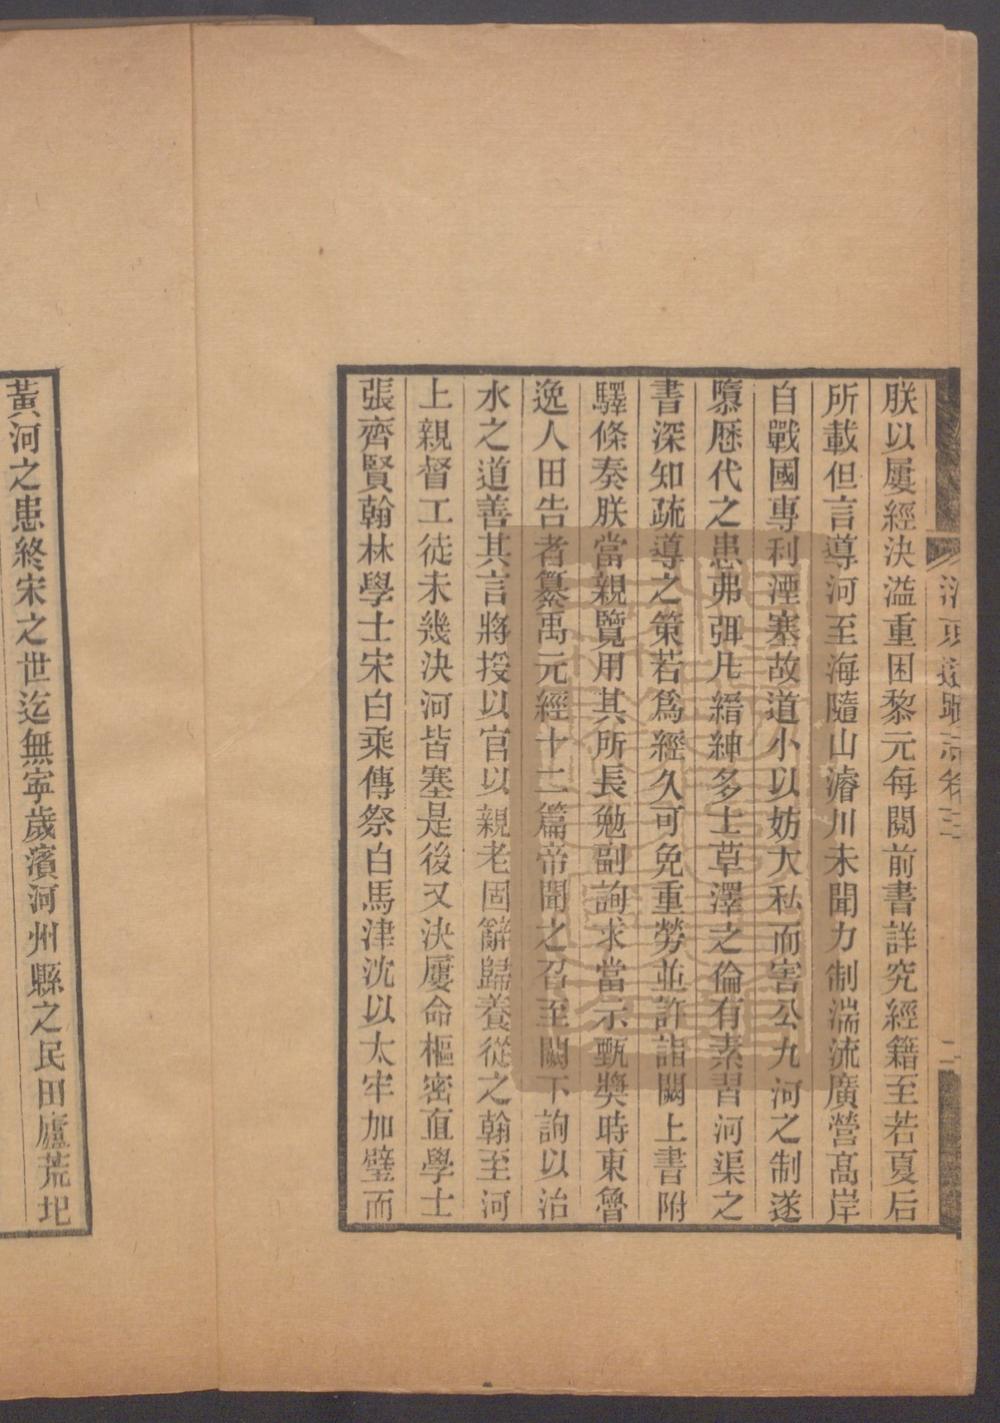 朕以屢經決溢重困黎元每閱前書詳究經籍至若夏后
所載但言導河至海隨山濬川未聞力制湍流廣營高岸
自戰國專利湮塞故道小以妨大私而害公九河之制遂
隳歷代之患弗弭凡縉紳多士草澤之倫有素習河渠之
書深知疏導之策若爲經久可免重勞並許詣闕上書附
驛條奏朕當親覽用其所長勉副詢求當示甄奬時東魯
逸人田告者纂禹元經十二篇帝聞之召至闕下詢以治
水之道善其言將授以官以親老固辭歸養從之翰至河
上親督工徒未幾決河皆塞是後又決屢命樞密直學士
張齊賢翰林學士宋白乘傳祭白馬津沈以太牢加璧而
黃河之患終宋之世迄無寧歲濱河州縣之民田廬荒圯
卷三
二